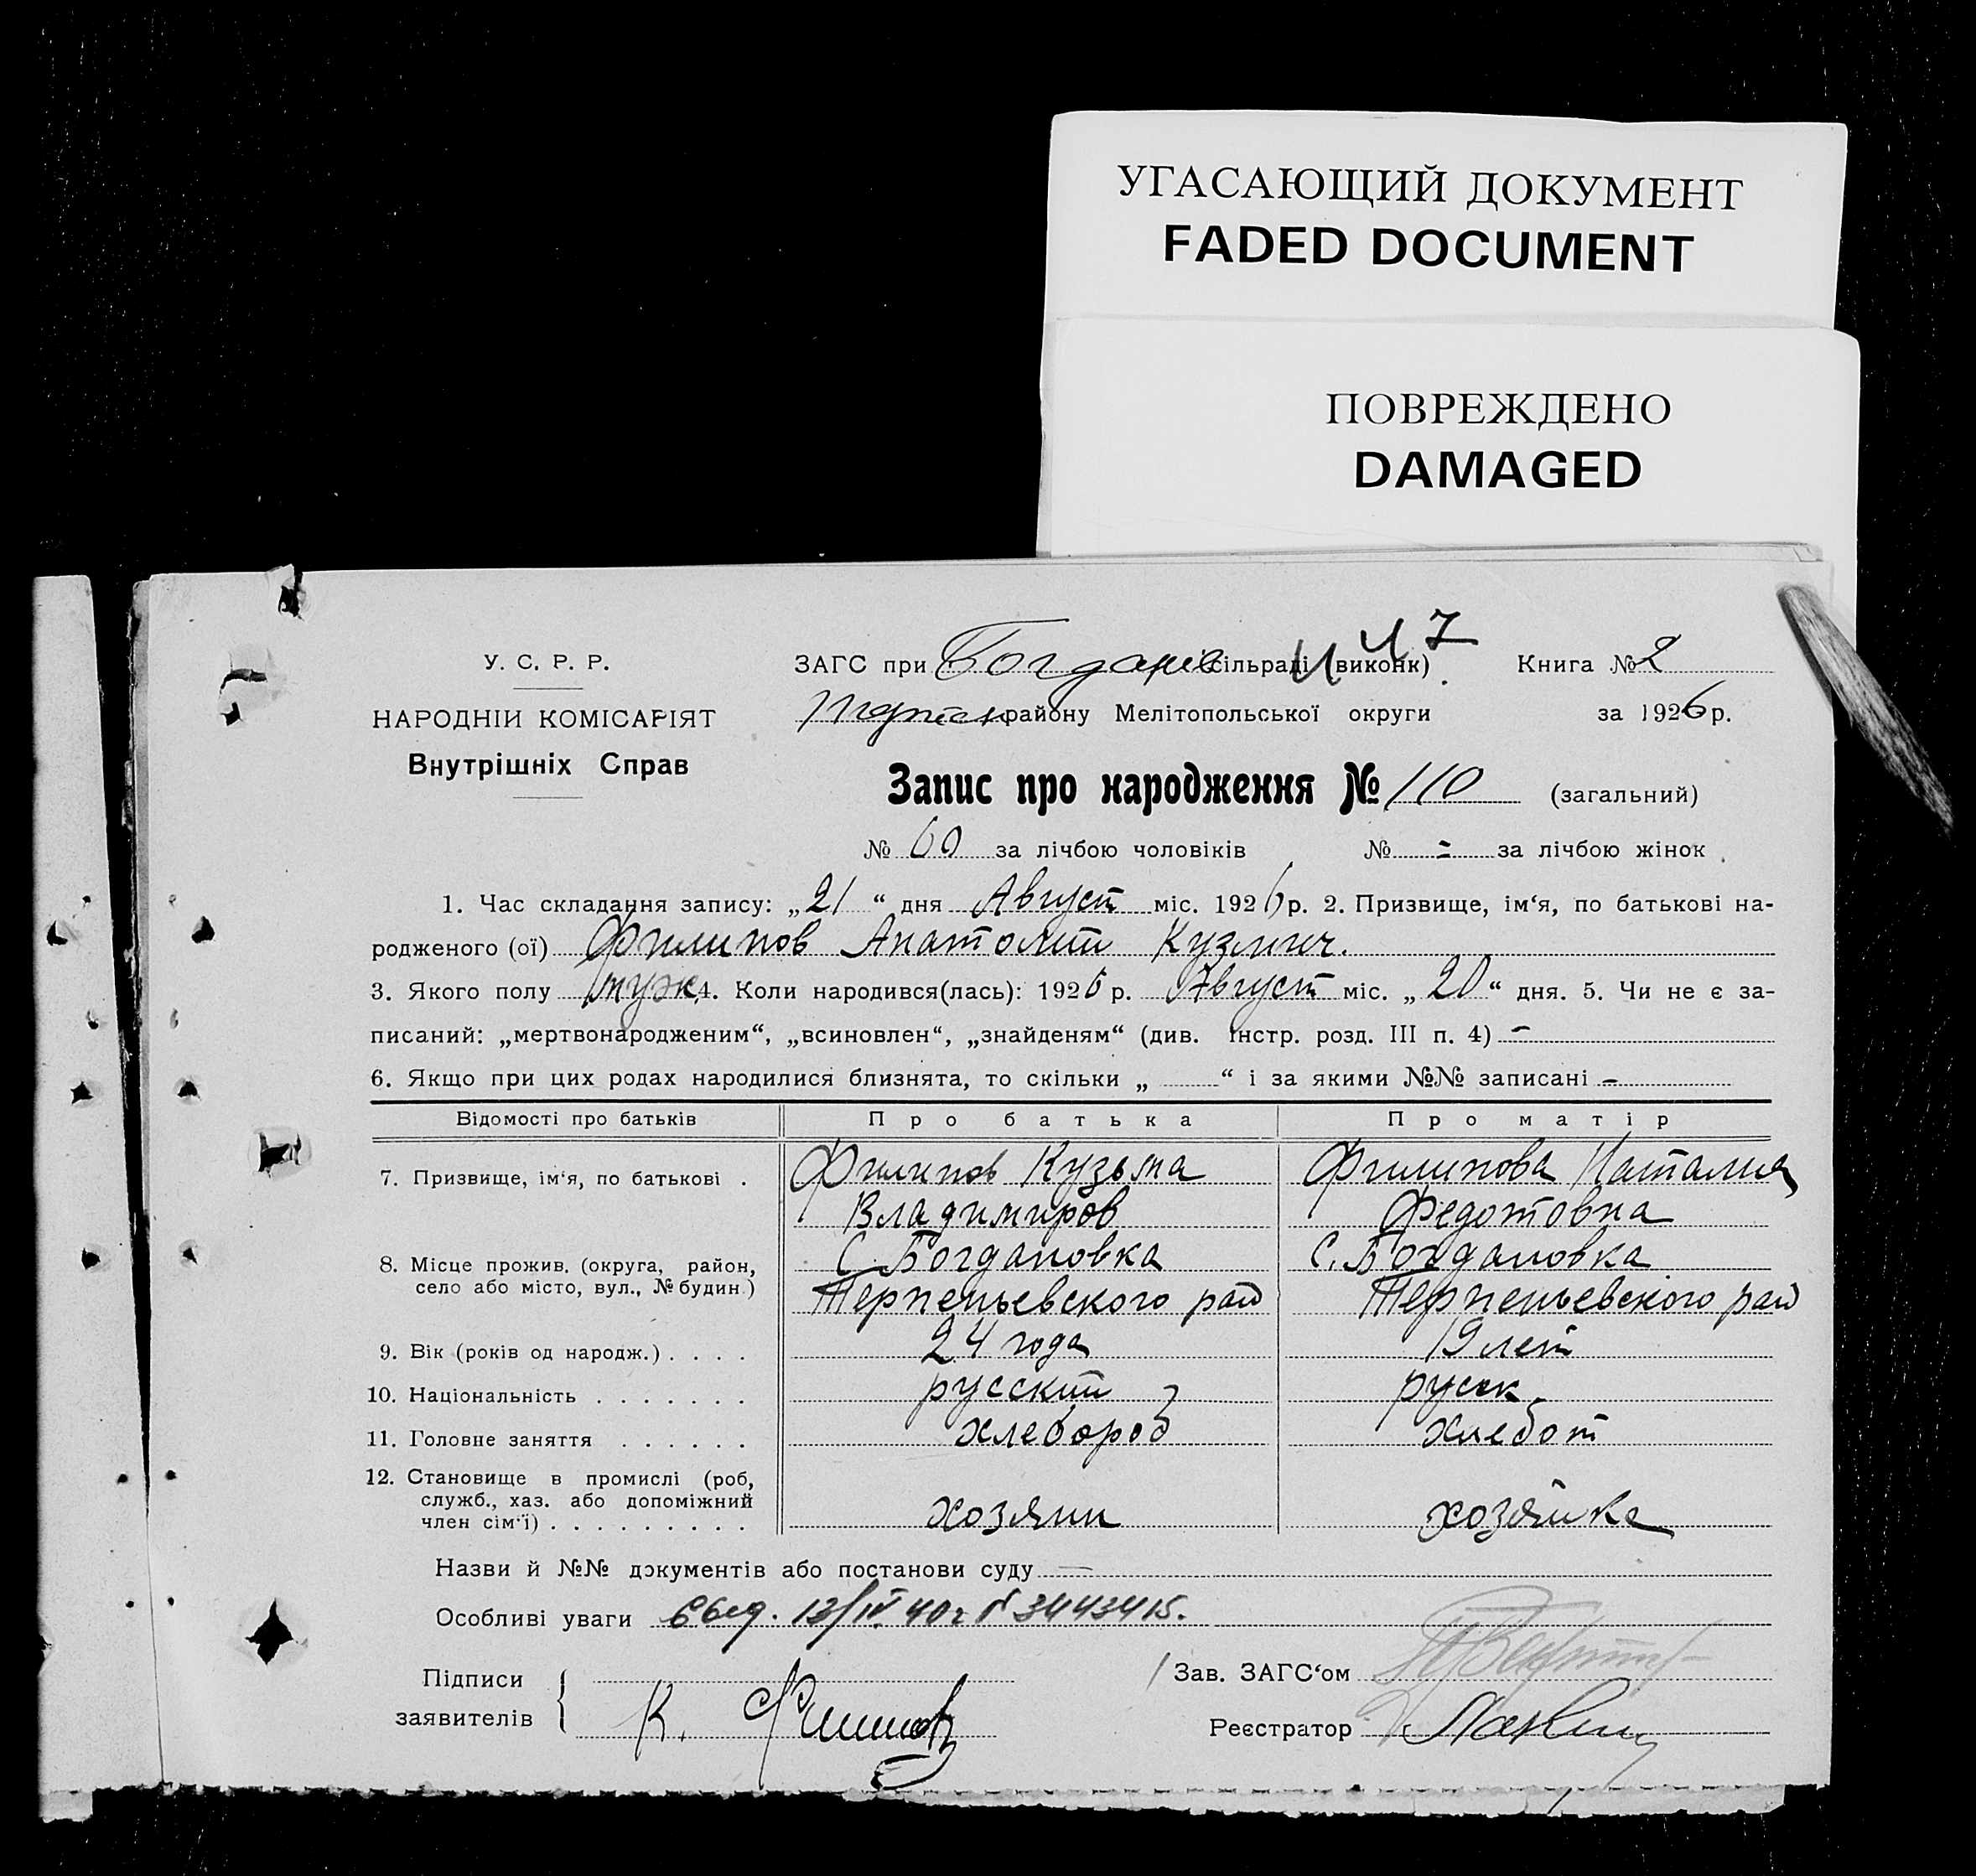 УГАСАЮЩИЙ ДОКУМЕНТ
FADED DOCUMENT
ПОВРЕЖДЕНО
DAMAGED
У. С. Р. Р.
НАРОДНІЙ КОМІСАРІЯТ
Внутрішніх Справ
ЗАГС при сільраді (виконк)
Книга № 2
району Мелітопольської округи
за 1926 р.
Запис про народження № 110 (загальний)
№ 60 за лічбою чоловіків № - за лічбою жінок
1. Час складання запису: „21“ дня Август міс. 1926 р. 2. Призвище, ім'я, по батькові на-
родженого (ої) Филипов Анатолий Кузмич.
3. Якого полу муж. 4. Коли народився(лась): 1926 р. Август міс. „20“ дня. 5. Чи не є за-
писаний: „мертвонародженим“, „всиновлен“, „знайденям“ (див. Інстр. розд. III п. 4) -
6. Якщо при цих родах народилися близнята, то скільки „ “ і за якими №№ записані -
Відомості про батьків Про батька Про матір
7. Призвище, ім'я, по батькові . Филипов Кузьма Филипова Наталия
Владимиров Федотовна
8. Місце прожив. (округа, район, С. Богдановка С. Богдановка
село або місто, вул., № будин.) Терпеньевского рай Терпеньевского рай
9. Вік (років од народж.) . . . . 24 года 19 лет
10. Національність . . . . . . . русский русск
11. Головне заняття . . . . . . хлебороб
12. Становище в промислі (роб,
служб., хаз. або допоміжний хозяин хозяйка
член сім'ї) . . . . . . . . .
Назви й №№ документів або постанови суду —
Особливі уваги 13/IV 40 г № 3443415.
Підписи
заявителів К. Филипов
Зав. ЗАГС'ом
Реєстратор